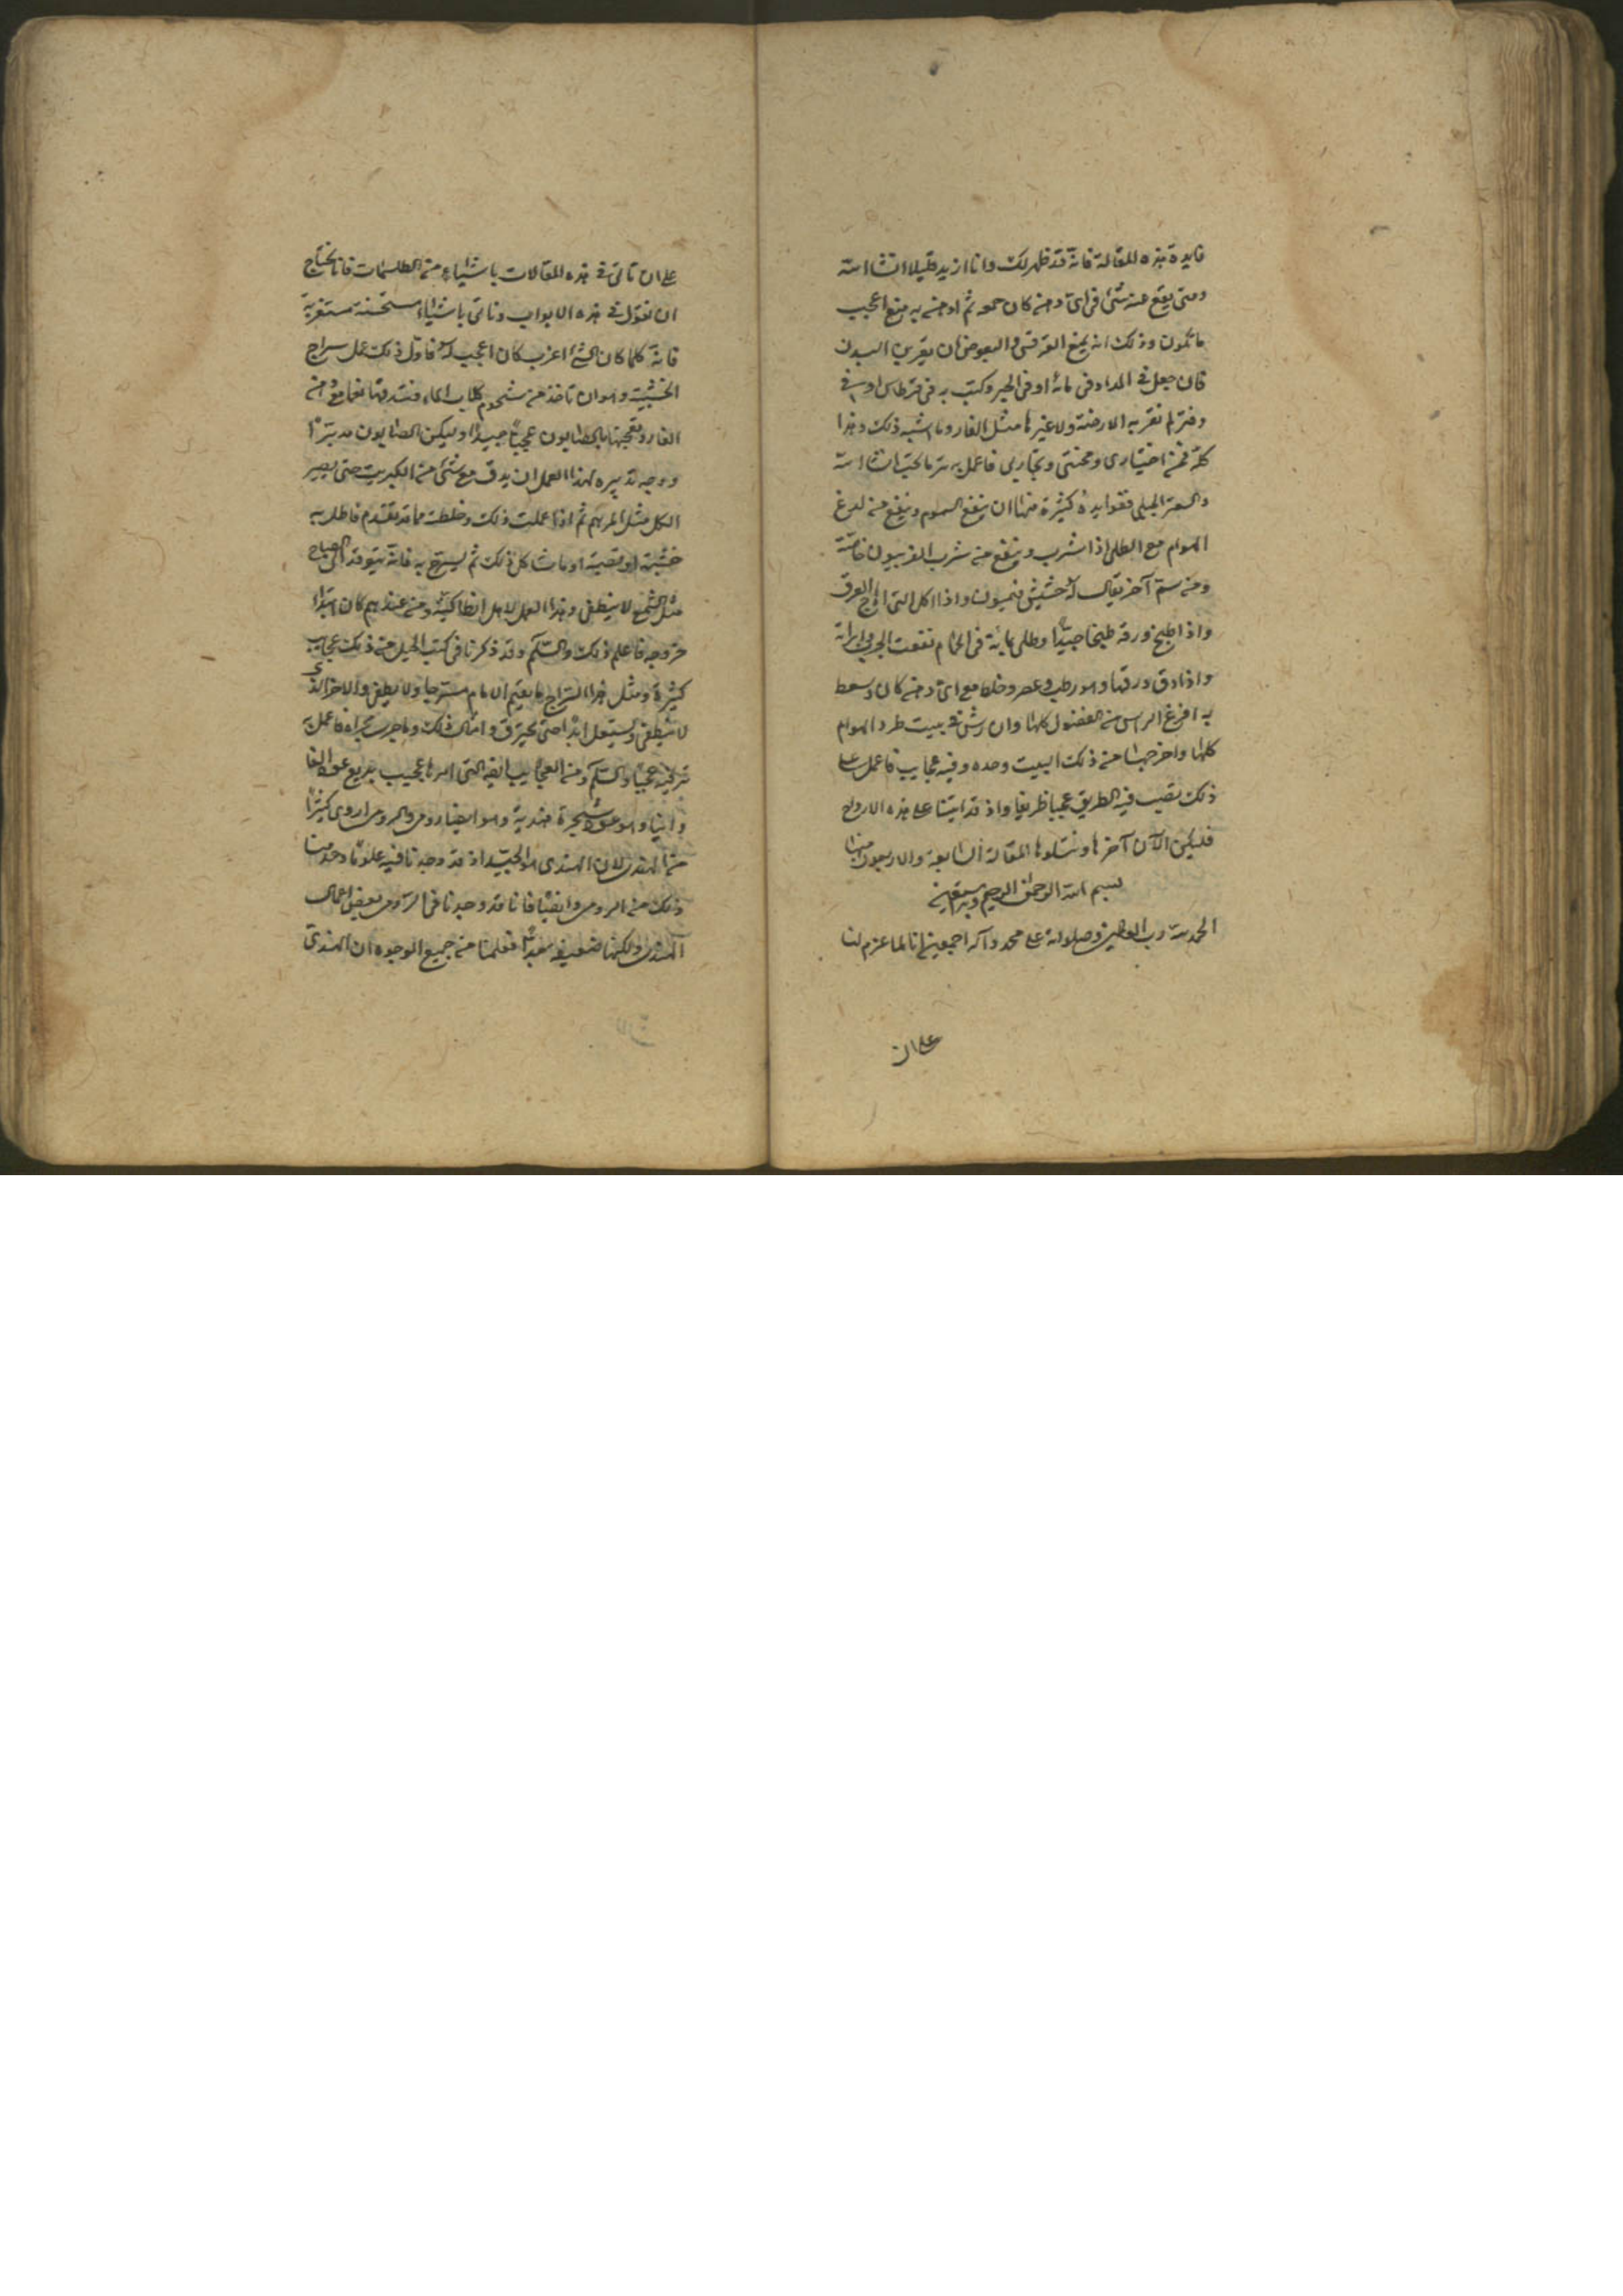 فايدة هذه المقالة فانه قد ظهر لك وانا ازيد قليلا انشا الله
ومتى يقع منه شئ فى اى دهن كان حمو ثم ادهن به منع اعجب
ما يكون وذلك انه يمنع البق والبعوض ان يقربن البدن
فان جعل فى المداد فى مائه او فى الحبر وكتب به فى قرطاس او فى
دفتر لم تقربه الارضة ولا غيرها مثل الفار وما اشبه ذلك وهذا
كله فمن اختيارى ومحنتى وتجاربى فاعمل به تر ما تحب انشا الله
والسعتر الجبلى ففوايده كثيرة منها ان ينفع السموم وينفع من لدغ
الهوام مع الطلى اذا شرب وينفع من شرب الفربيون خاصة
ومن سم آخر يقال له حشيش فنميون واذا اكل التين اهاج العرق
واذا طبخ ورقه طبخا جيدا وطلى بمائه فى الحمام نفعت الجرب وابراته
واذا دق ورقها وهو رطب وعصر وخلط مع اى دهن كان وسعط
به افرغ الراس من الفضول كلها وان رش فى بيت طرد الهوام
كلها واخرجها من ذلك البيت وحده وفيه عجايب فاعمل على
ذلك تصيب فيه الطريق عجيبا ظريفا واذ قد اتينا على هذه الارواح
فليكن الآن آخرها ونتلوها المقالة السابعة والاربعون منها
بسم الله الرحمن الرحيم وبه نستعين
الحمد لله رب العالمين وصلواته على محمد وآله اجمعين انا لما عزم لنا
على ان
على ان ناتى فى هذه المقالات باشياء من الطلسمات فانا نحتاج
ان نقول فى هذه الابواب وناتى باشياء مستحسنة مستغربة
فانه كلما كان الشئ اغرب كان اعجب له فاول ذلك عمل سراج
الخشبية وهو ان تاخذ من شحوم كلاب الماء فتدقها نعما مع دهن
الغار وتعجنها بالصابون عجنا جيدا وليكن الصابون مدبرا
ووجه تدبيره لهذا العمل ان يدق مع شئ من الكبريت حتى يصير
الكل مثل المرهم ثم اذا عملت ذلك وخلطت مما قد تقدم فاطل به
خشبة او قصبة او ما شاكل ذلك ثم يستسرج به فانه يتوقد الى الصباح
مثل الشمع لا ينطفى وهذا العمل لاهل انطاكية ومن عندهم كان ابتداء
خروجه فاعلم ذلك والسلم وقد ذكرنا فى كتب الحيل من ذلك عجايب
كثيرة ومثل هذا السراج ما يقيم الايام مسترجا ولا يطفى والاخر الذى
لا ينطفى ويشتعل ابدا حتى يحترق وامثال ذلك وما جرى مجراه فاعمل به
تر فيه عجبا والسلم ومن العجايب ايضا التى امرها عجيب بديع عود الفا
وانيا وهو عود شجرة هندية وهو ايضا رومى والرومى اروى كثيرا
من الهندى لان الهندى هو الجيد اذ قد وجدنا فيه علوما وخدمنا
ذلك من الرومى وايضا فانا قد وجدنا فى الرومى بعض اعمال
الهندى ولكنها ضعيفه بعيدا فعلمنا من جميع الوجوه ان الهندى